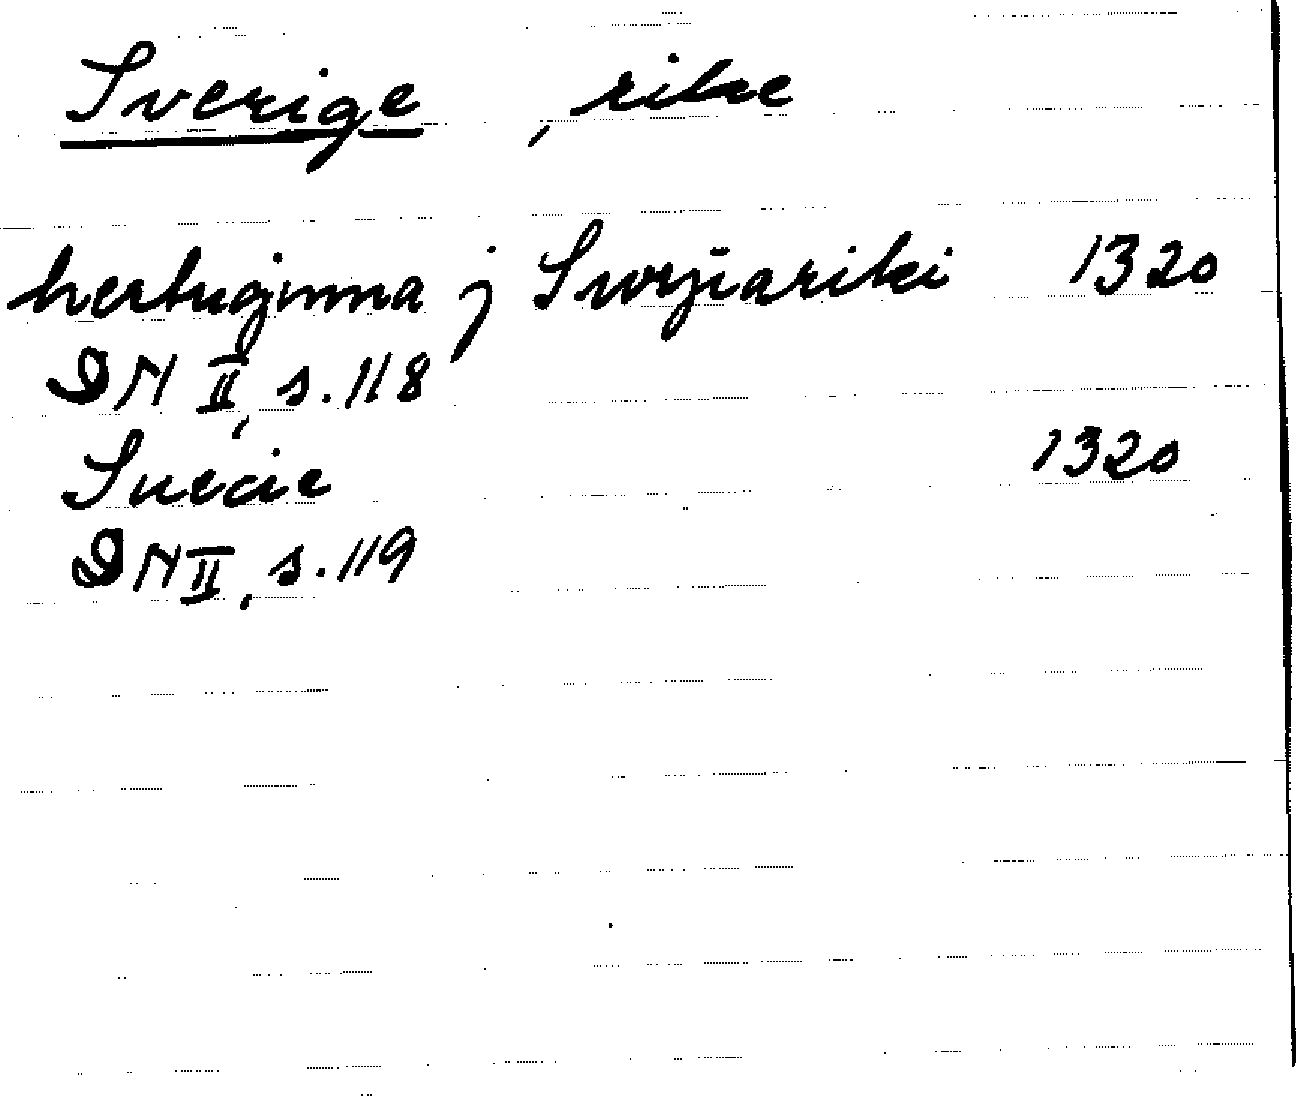 Sverige , rike
hertuginna j Swryiariki 1320
DN II, s. 118
Suecie 1320
DN II, s. 119